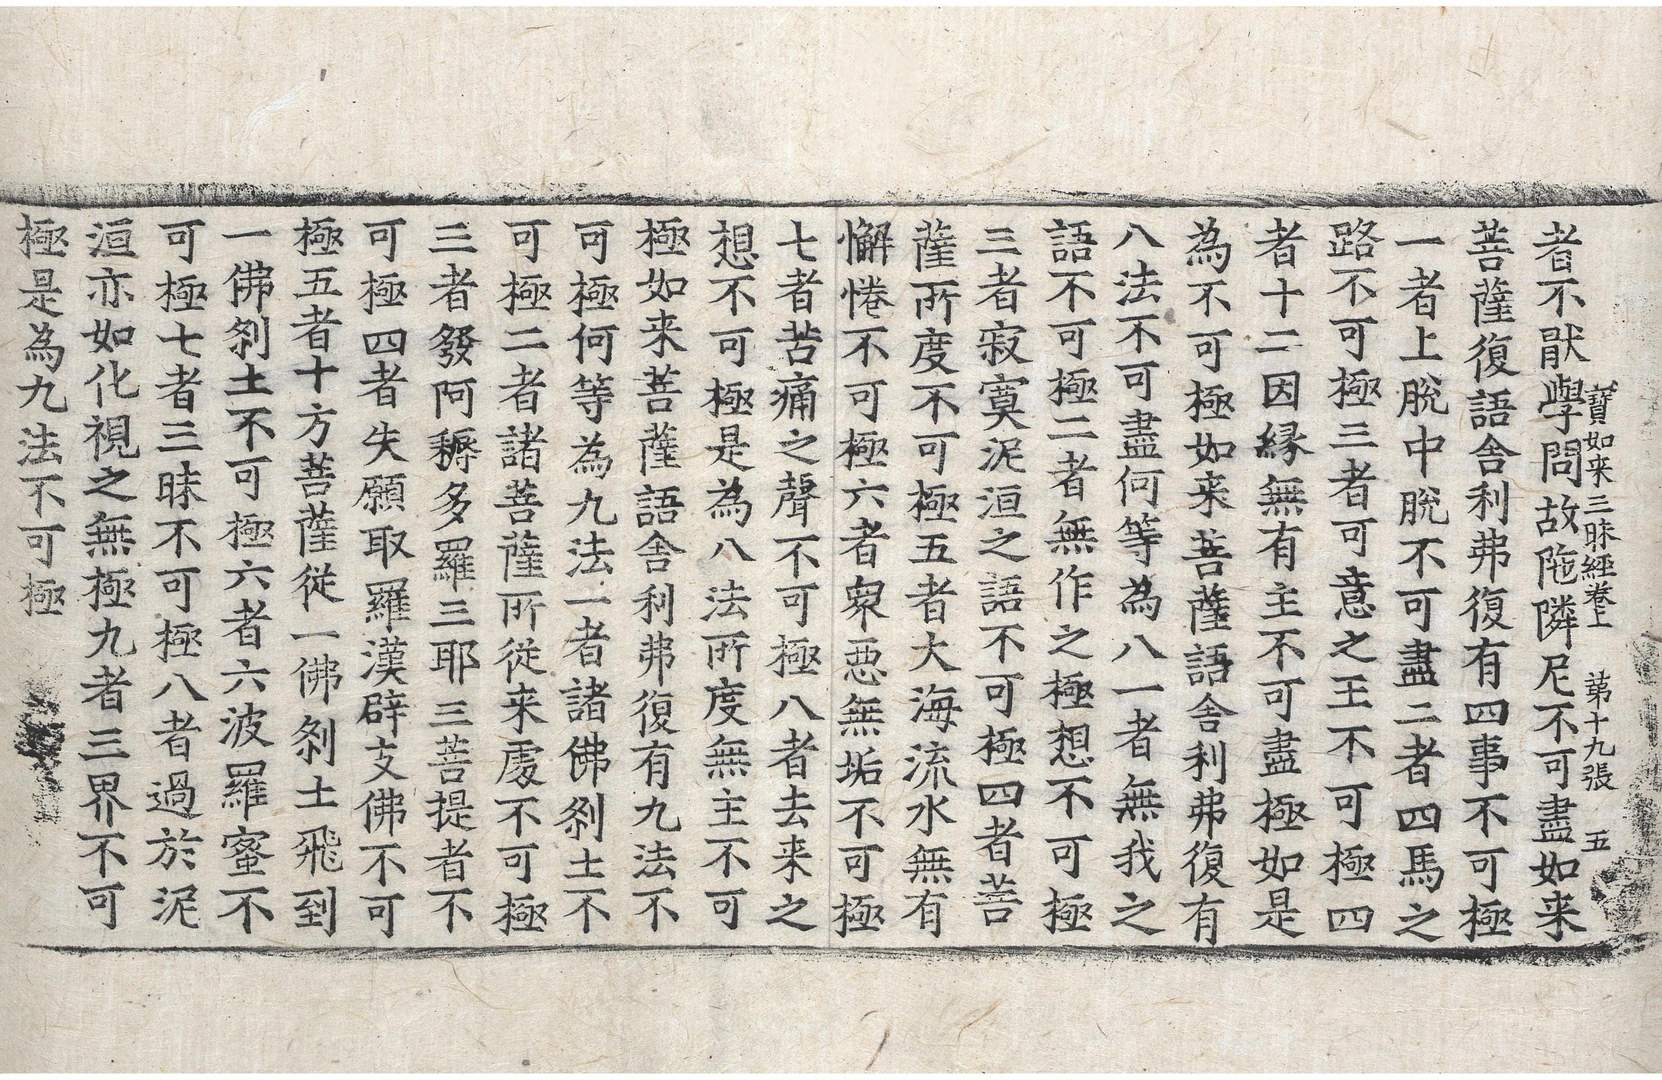 寶如来三昧經卷上　第十九張　五
者不猒學問故陁隣尼不可盡如来
菩薩復語舎利弗復有四事不可極
一者上脫中脫不可盡二者四馬之
路不可極三者可意之王不可極四
者十二因緣無有主不可盡極如是
為不可極如来菩薩語舎利弗復有
八法不可盡何等為八一者無我之
語不可極二者無作之極想不可極
三者寂寞泥洹之語不可極四者菩
薩所度不可極五者大海流水無有
懈惓不可極六者衆惡無垢不可極
七者苦痛之聲不可極八者去来之
想不可極是為八法所度無主不可
極如来菩薩語舎利弗復有九法不
可極何等為九法一者諸佛刹土不
可極二者諸菩薩所従来處不可極
三者發阿耨多羅三耶三菩提者不
可極四者失願取羅漢辟支佛不可
極五者十方菩薩従一佛刹土飛到
一佛刹土不可極六者六波羅蜜不
可極七者三昧不可極八者過於泥
洹亦如化視之無極九者三界不可
極是為九法不可極